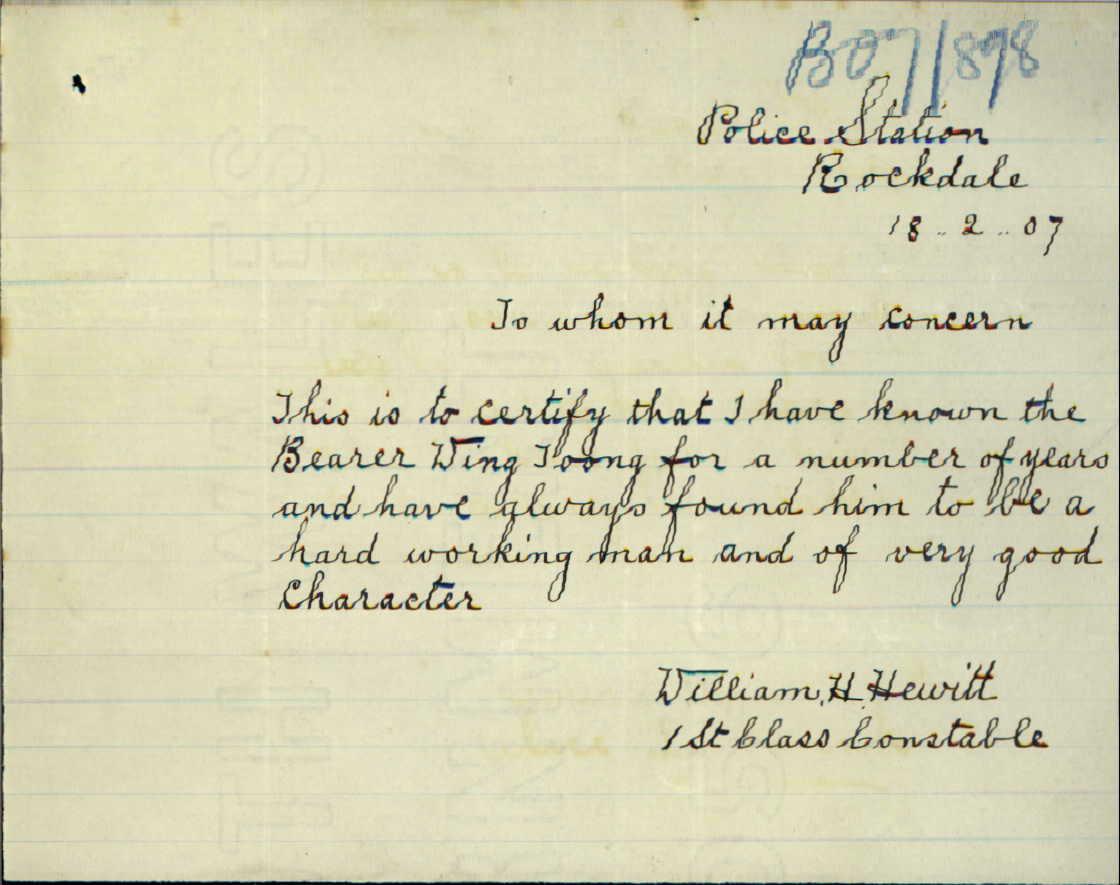 B07/898
Police Station
Rockdale
18..2..07
To whom it may concern
This is to certify that I have known the
Bearer Wing Toong for a number of years
and have always found him to be a
hard working man and of very good
Character
William. H. Hewitt
1st Class Constable